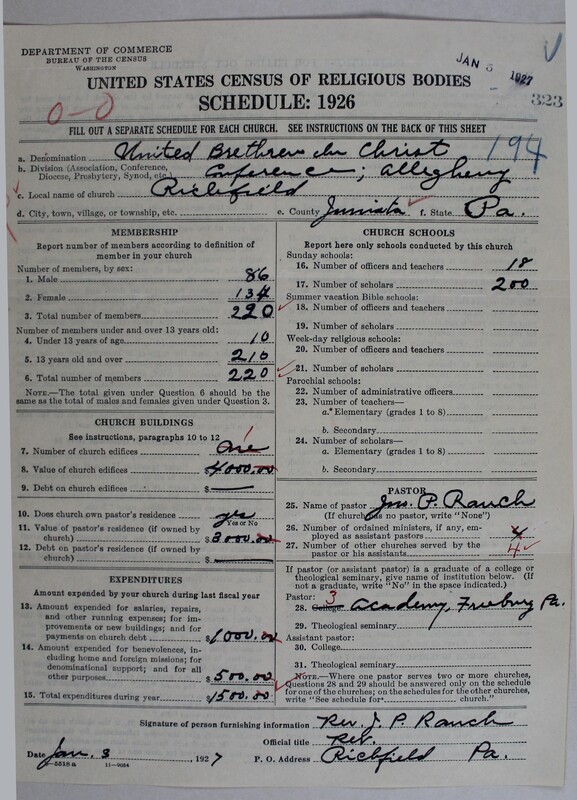 DEPARTMENT OF COMMERCE
BUREAU OF THE CENSUS
WASHINGTON
JAN 5 1927
323
UNITED STATES CENSUS OF RELIGIOUS BODIES
SCHEDULE: 1926
0-0
FILL OUT A SEPARATE SCHEDULE FOR EACH CHURCH. SEE INSTRUCTIONS ON THE BACK OF THIS SHEET
194
a. Denomination United Brethren in Christ
b. Division (Association, Conference, Diocese, Presbytery, Synod, etc.) Conference; Allegheny
c. Local name of church Richfield
d. City, town, village, or township, etc. e. County Juniata f. State Pa.
MEMBERSHIP
Report number of members according to definition of
member in your church
Number of members, by sex:
1. Male 86
2. Female 134
3. Total number of members 220
Number of members under and over 13 years old:
4. Under 13 years of age 10
5. 13 years old and over 210
6. Total number of members 220
NOTE.—The total given under Question 6 should be
the same as the total of males and females given under Question 3.
CHURCH BUILDINGS
See instructions, paragraphs 10 to 12
7. Number of church edifices One 1
8. Value of church edifices $4000.00
9. Debt on church edifices $
10. Does church own pastor's residence? yes
Yes or No
11. Value of pastor's residence (if owned by
church) $3000.00
12. Debt on pastor's residence (if owned by
church) $
EXPENDITURES
Amount expended by your church during last fiscal year
13. Amount expended for salaries, repairs,
and other running expenses; for im-
provements or new buildings; and for
payments on church debt $1000.00
14. Amount expended for benevolences, in-
cluding home and foreign missions; for
denominational support; and for all
other purposes $500.00
15. Total expenditures during year $1500.00
CHURCH SCHOOLS
Report here only schools conducted by this church
Sunday schools:
16. Number of officers and teachers 18
17. Number of scholars 200
Summer vacation Bible schools:
18. Number of officers and teachers
19. Number of scholars
Week-day religious schools:
20. Number of officers and teachers
21. Number of scholars
Parochial schools:
22. Number of administrative officers
23. Number of teachers—
a. Elementary (grades 1 to 8)
b. Secondary
24. Number of scholars—
a. Elementary (grades 1 to 8)
b. Secondary
PASTOR
25. Name of pastor Jno. P. Rauch
(If church has no pastor, write "None")
26. Number of ordained ministers, if any, em-
ployed as assistant pastors 4
27. Number of other churches served by the
pastor or his assistants 4
If pastor (or assistant pastor) is a graduate of a college or
theological seminary, give name of institution below. (If
not a graduate, write "No" in the space indicated.)
Pastor: 3
28. College Academy, Freeburg Pa.
29. Theological seminary
Assistant pastor:
30. College
31. Theological seminary
NOTE.—Where one pastor serves two or more churches,
Questions 28 and 29 should be answered only on the schedule
for one of the churches; on the schedules for the other churches,
write "See schedule for church."
Signature of person furnishing information Rev. J. P. Rauch
Official title Rev.
Date Jan. 3 1927 P. O. Address Richfield Pa.
8-5518 a 11-9054